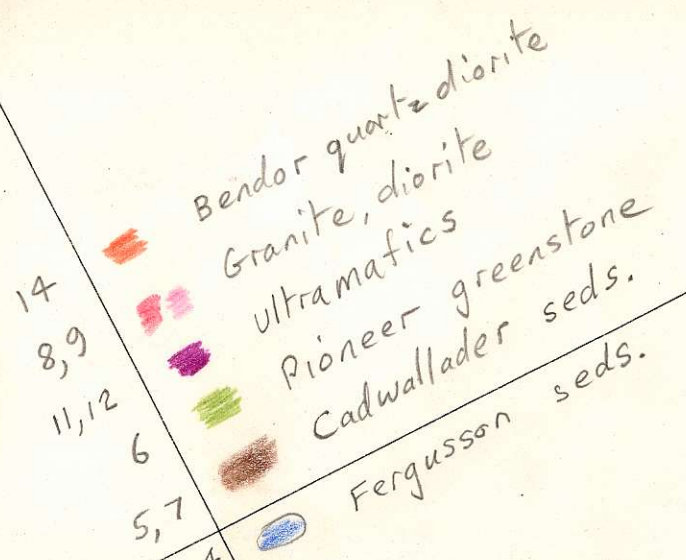 14 Bendor quartz diorite
8,9 Granite, diorite
11,12 ultramafics
6 Pioneer greenstone
5,7 Cadwallader seds.
Fergusson seds.